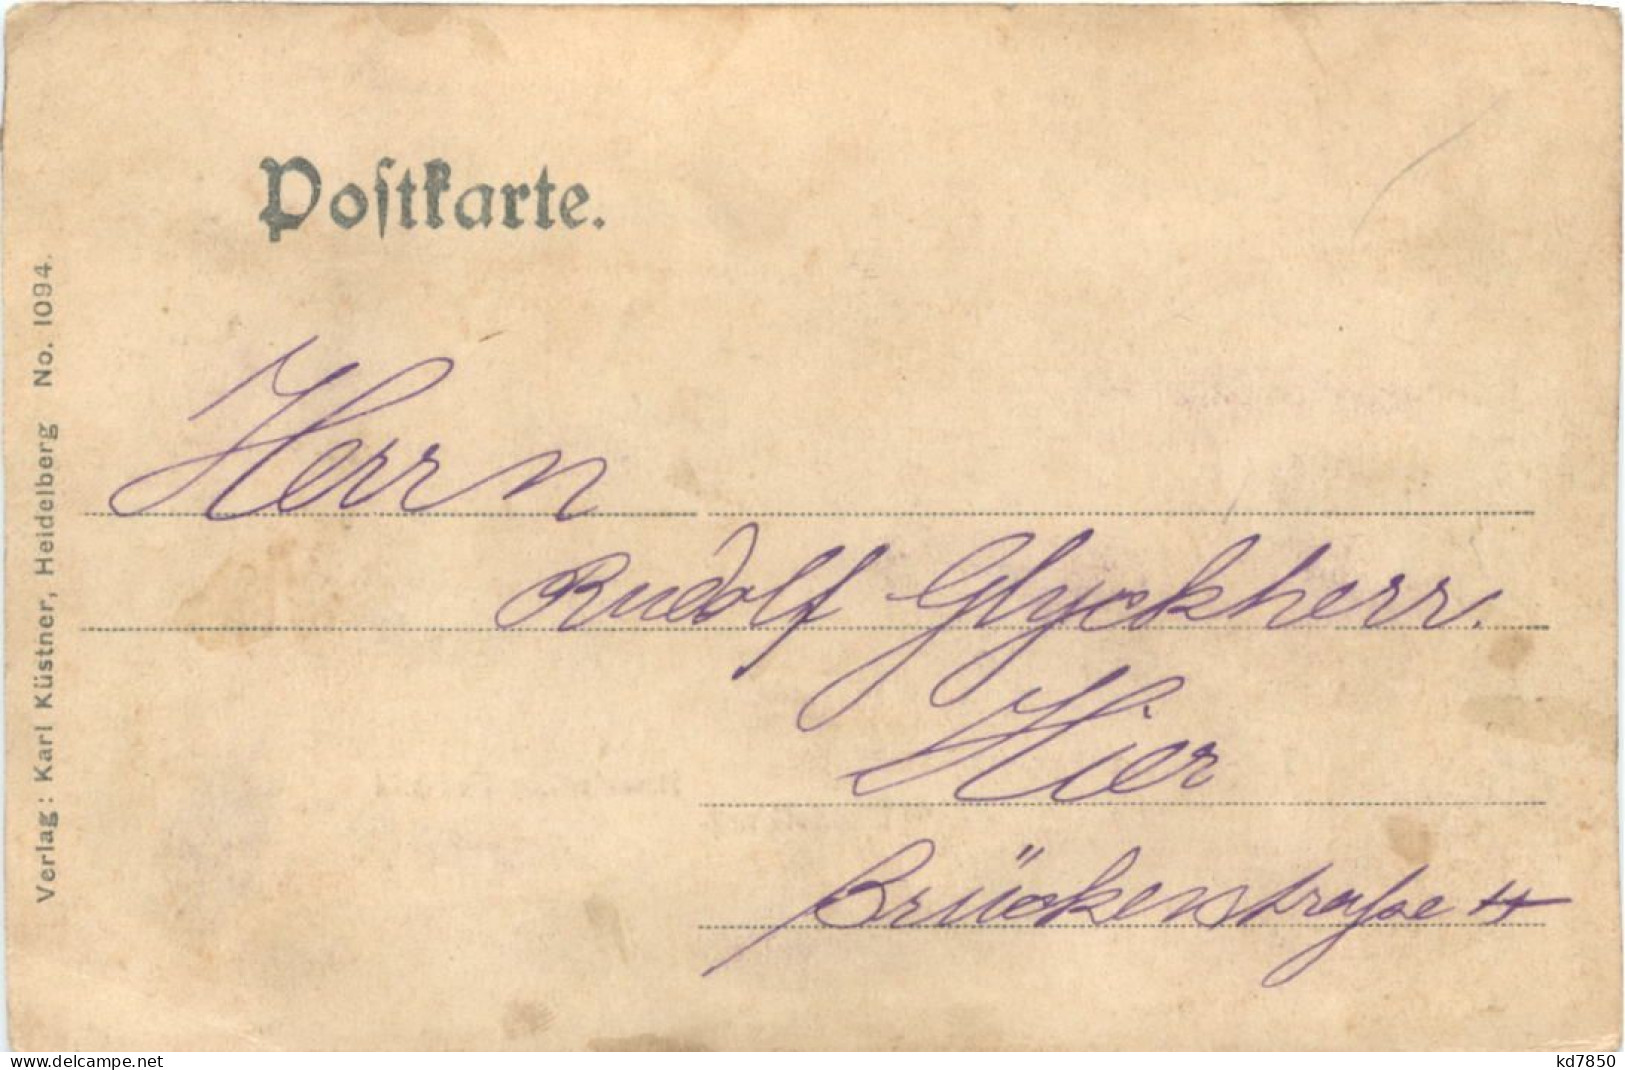 Postkarte.
Verlag: Karl Küstner, Heidelberg No. 1094.
Herrn
Rudolf Glyckherr.
Hier
Brückenstraße 4
www.delcampe.net
kd7850